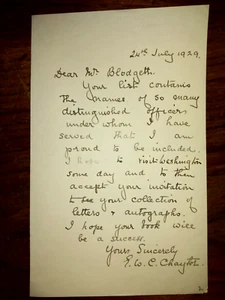 24th July 1929.
Dear Mr Blodgett.
Your list contains
the names of so many
distinguished officers
under whom I have
served that I am
proud to be included.
I hope to visit Washington
some day and to then
accept your invitation
to see your collection of
letters & autographs.
I hope your book will
be a success.
Yours Sincerely
E. W. C. Chaytor.